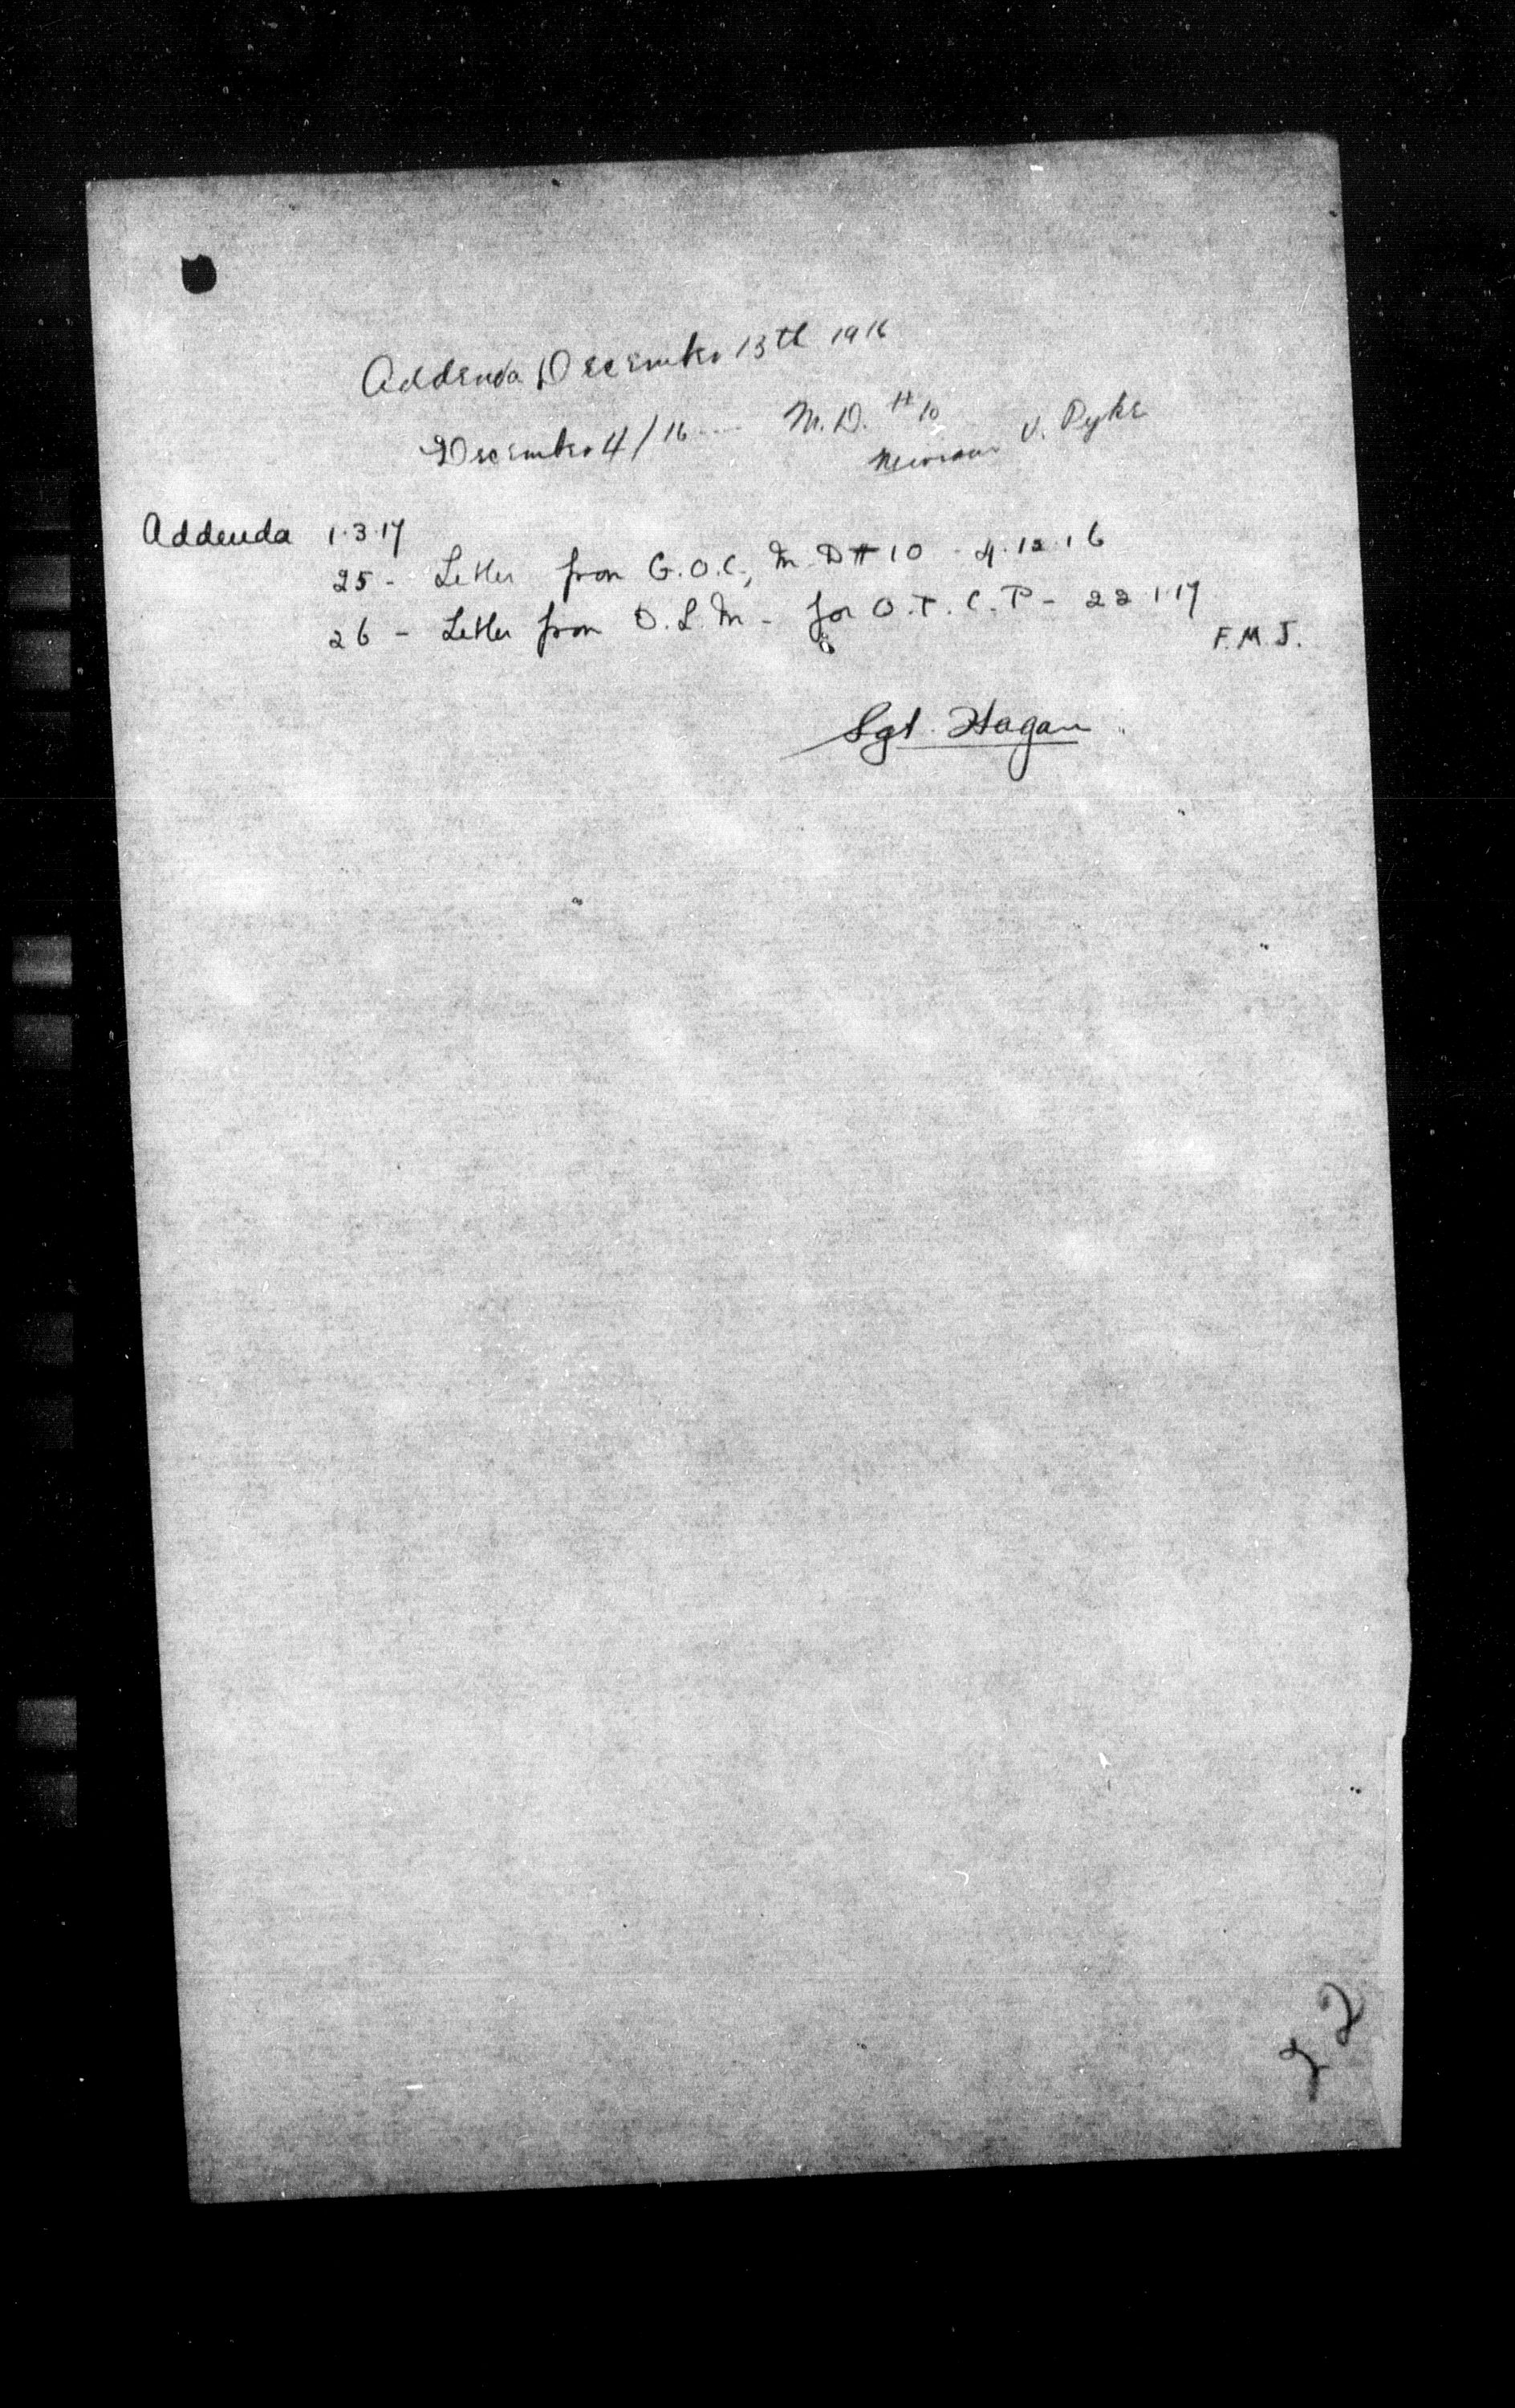 Addenda December 13th 1916
December 4/16 .... M.D. #10
V. Pyke
Addenda 1.3.17
25 - Letter from G.O.C., M.D #10 - 4.12.16
26 - Letter from D.S.M - for O.T.C.P - 22.1.17
F.M.J.
Sgt. Hagan
22